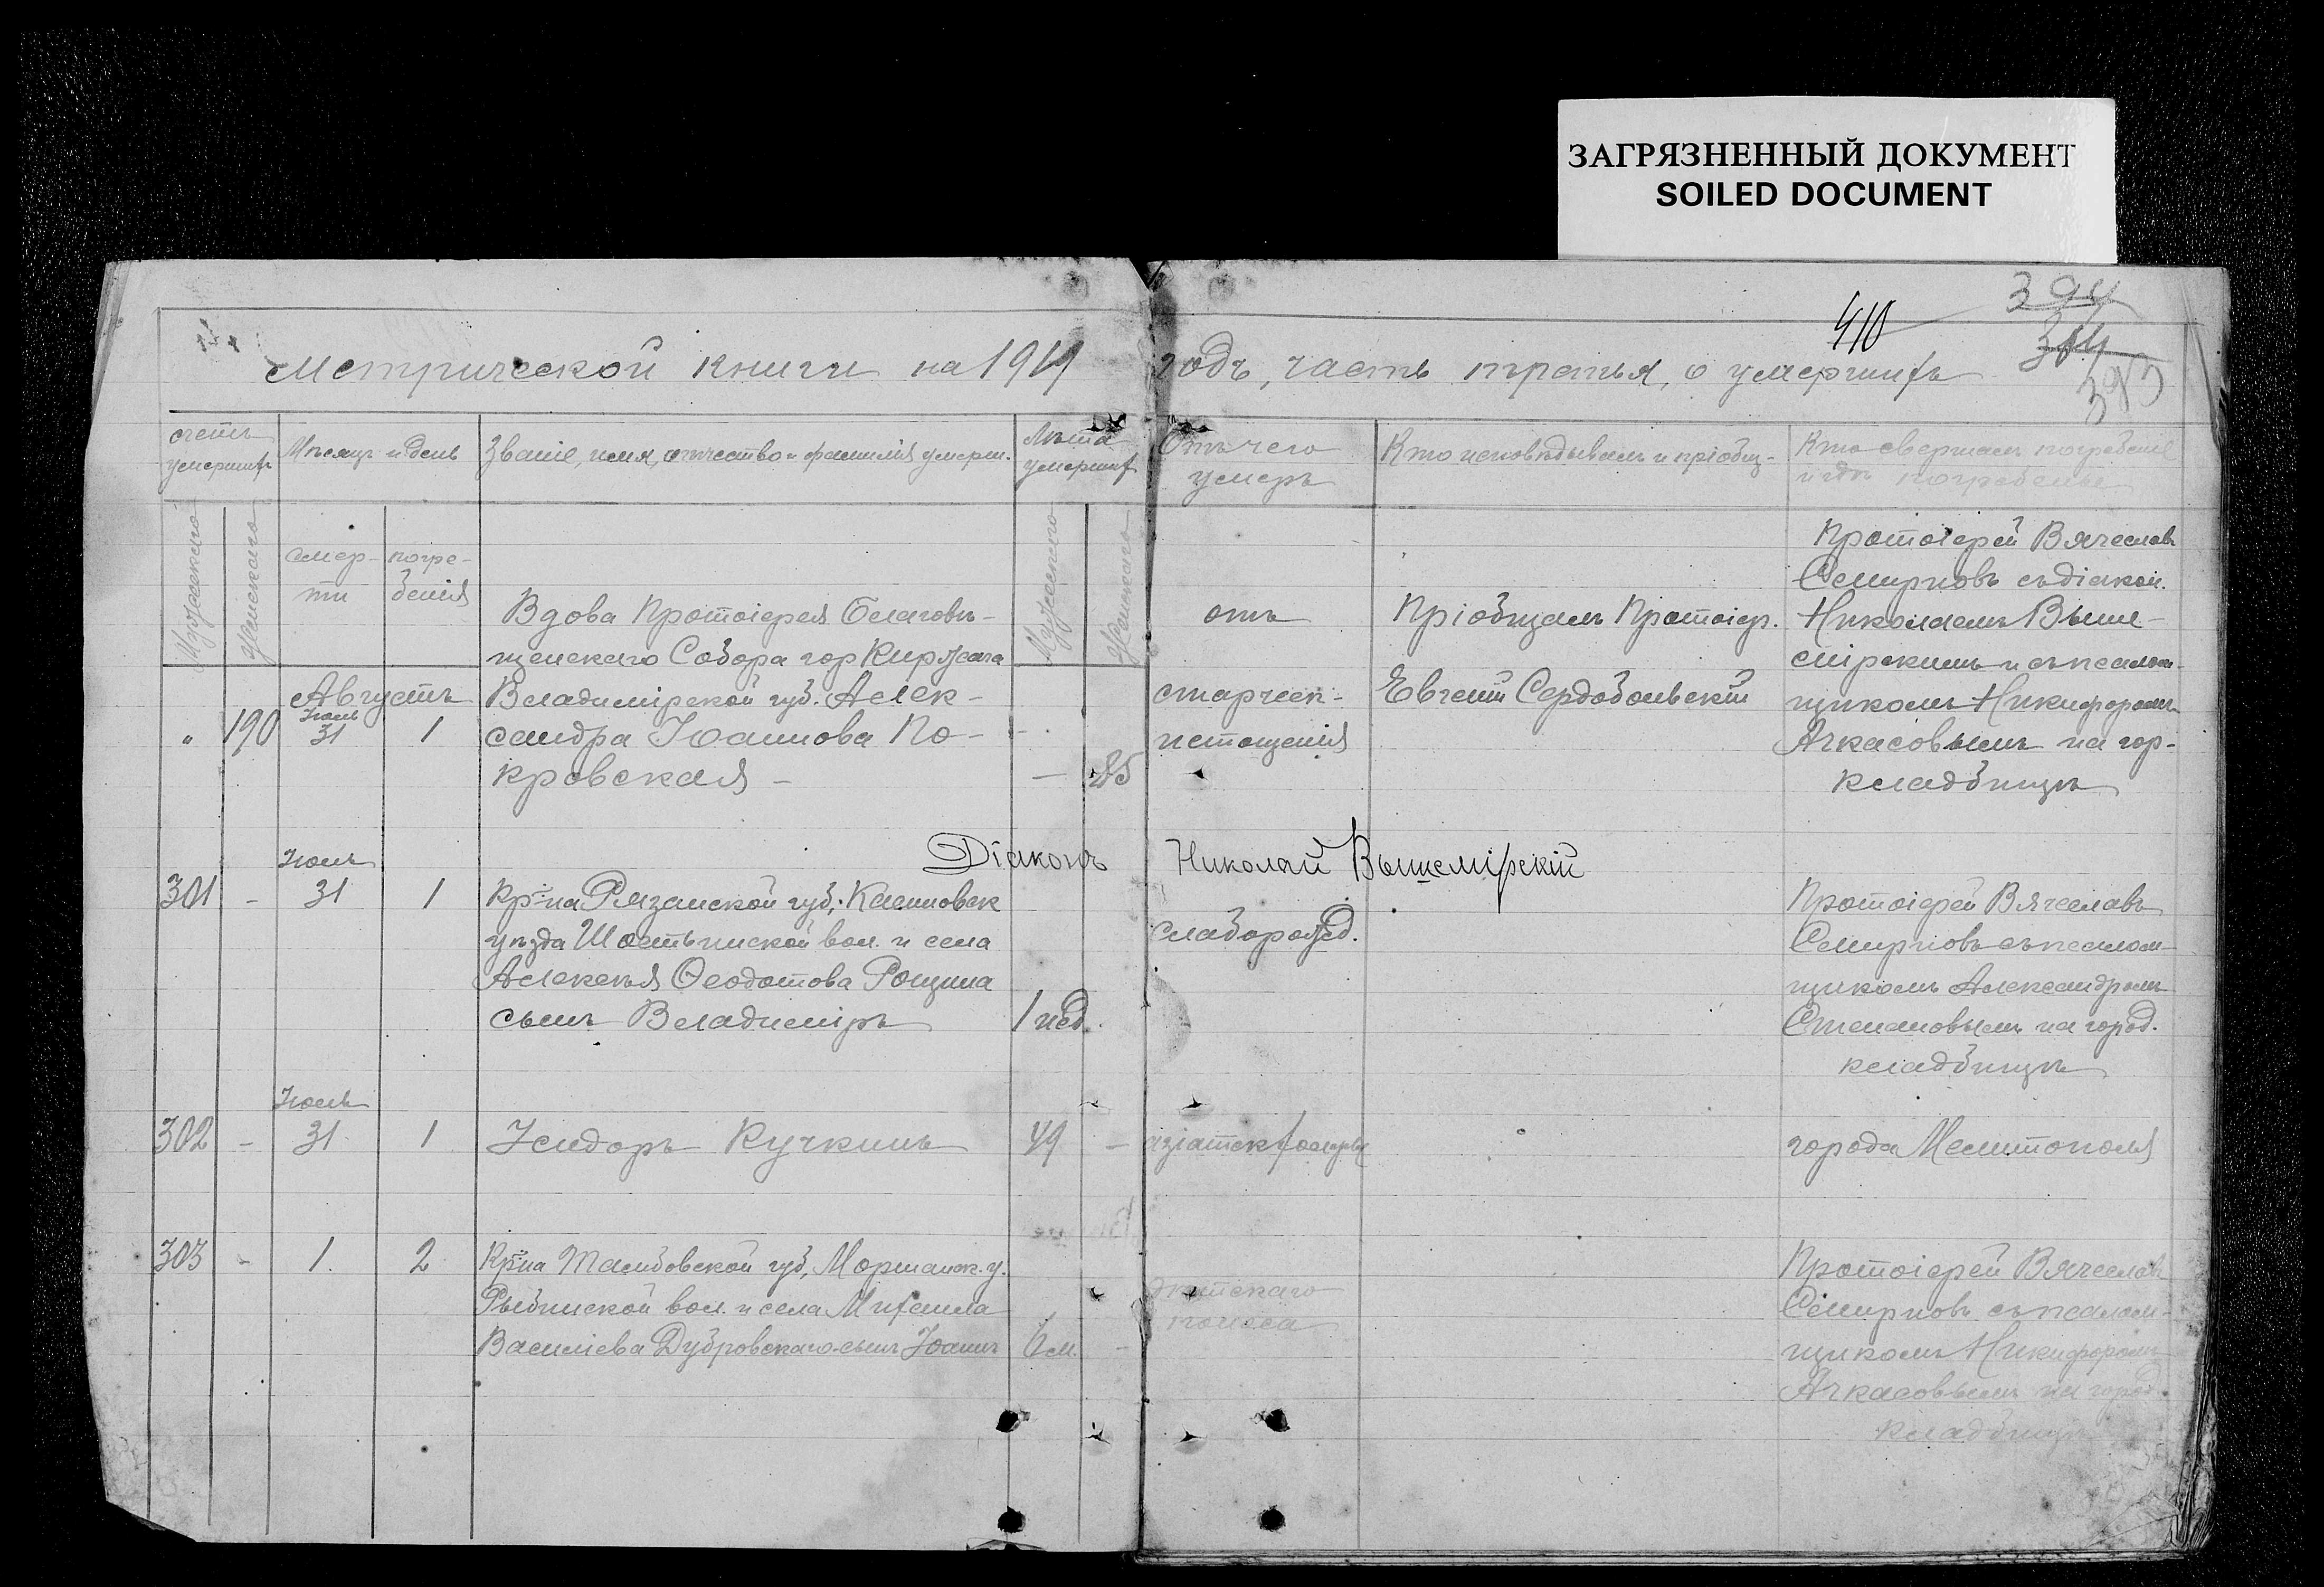 ЗАГРЯЗНЕННЫЙ ДОКУМЕНТ
SOILED DOCUMENT
394
410
314
393
Метрической книги на 1919 годъ, часть третья, о умершихъ
счетъ умершихъ
Мѣсяцъ и день
Званіе, имя, отчество и фамилія умерш.
Лѣта умершихъ
Отъ чего умеръ
Кто исповѣдывалъ и пріобщ-
Кто совершалъ погребеніе
и гдѣ погребены
Мужескаго
Женскаго
смер-
ти
погре-
бенія
Мужескаго
Женскаго
Августъ
" 190
Іюль
31 1
Вдова Протоіерея Благовѣ-
щенскаго Собора гор Киржача
Владимірской губ. Алек-
сандра Іоаннова По-
кровская –
— 85
отъ
старческ-
истощенія
Пріобщалъ Протоіер.
Евгеній Сердобольскій
Протоіерей Вячеславъ
Смирновъ съ діакон.
Николаемъ Выше-
мірскимъ и съ псалом-
щикомъ Никифоромъ
Ачкасовымъ на гор-
кладбищѣ
Діаконъ Николай Вышемірскій
301 -
Іюль
31 1
Кр-на Рязанской губ, Касимовск
уѣзда Шостьинской вол. и села
Алексѣя Ѳеодотова Рощина
сынъ Владиміръ
1 нед.
слаборожд.
Протоіерей Вячеславъ
Смирновъ съ псалом-
щикомъ Александромъ
Степановымъ на город.
кладбищѣ
302 -
Іюль
31 1
Исидоръ Кучкинъ
49 -
азіатск холеры
города Мелитополя
303 -
1. 2
Кр-на Тамбовской губ, Моршанск. у.
Рыбинской вол. и села Михаила
Василіева Дубровскаго сынъ Іоаннъ
6 м. -
дѣтскаго
поноса
Протоіерей Вячеславъ
Смирновъ съ псалом-
щикомъ Никифоромъ
Ачкасовымъ на город.
кладбищѣ